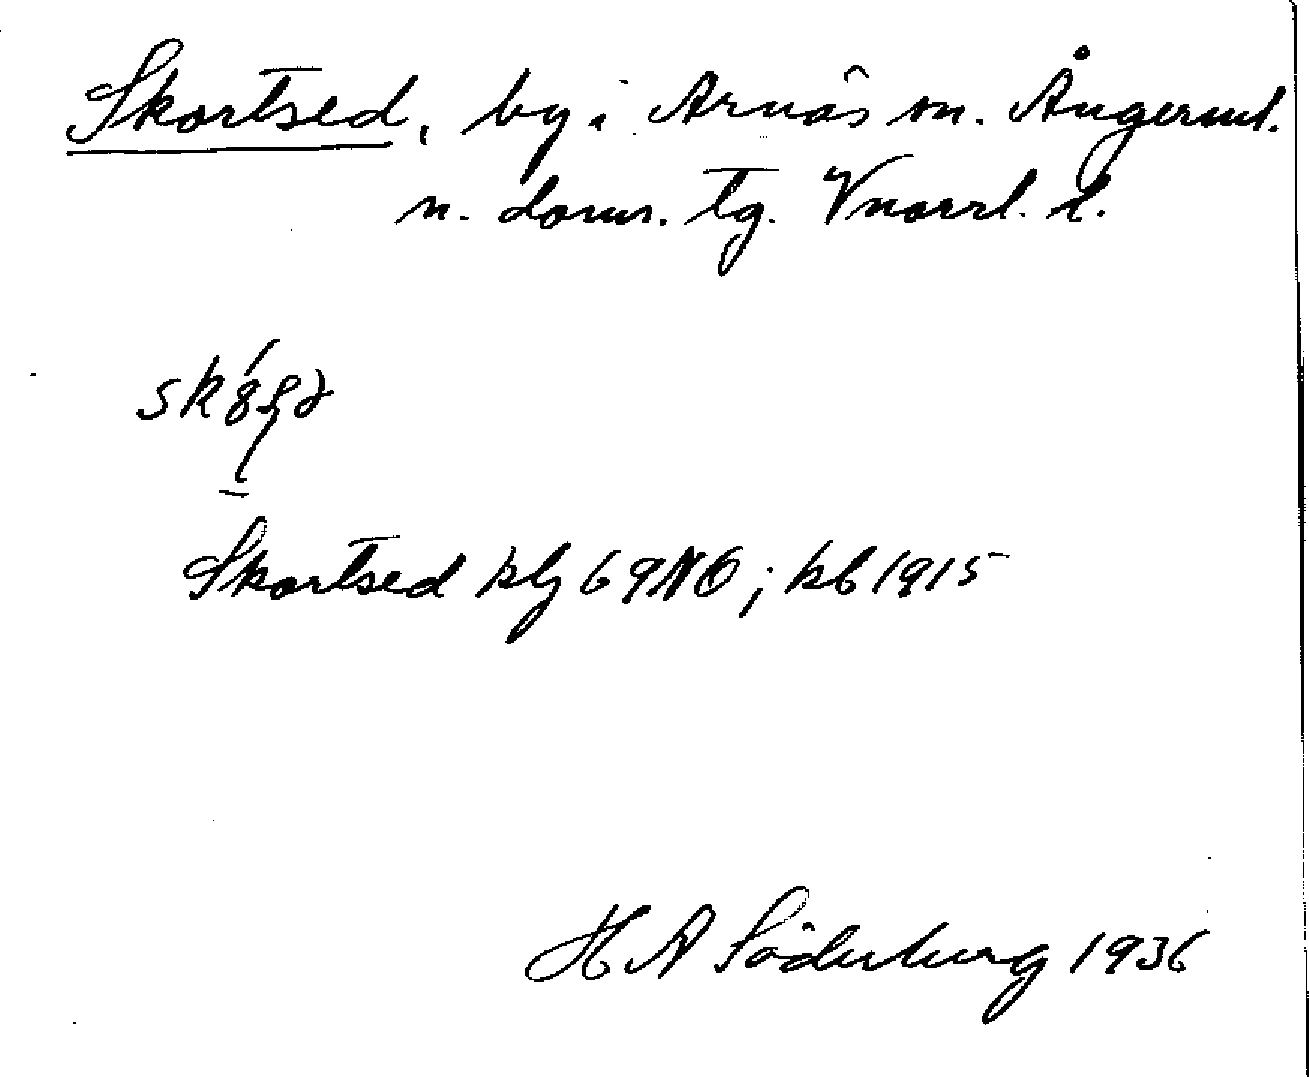 Skortsed, by i Arnäs sn. Ångerml.
n. doms. tg. Vnorrl. l.
Skortsed klg 69NO; kb 1915
H A Söderberg 1936